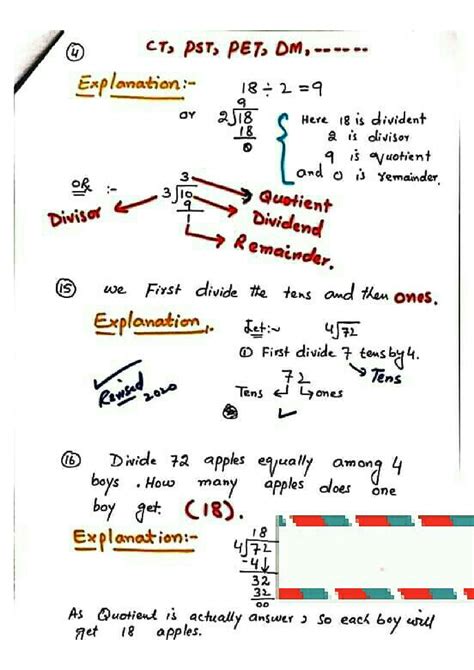 ④ CT, PST, PET, DM,------
Explanation:- 18 ÷ 2 = 9
or
9
2√18
18
0
Here 18 is divident
2 is divisor
9 is quotient
and 0 is remainder.
OR :-
3
3√10
9
1
Divisor
Quotient
Dividend
Remainder.
⑮ we First divide the tens and then ones.
Explanation. Let:~ 4√72
① First divide 7 tens by 4.
72 Tens
Tens ones
Revised 2020
⑯ Divide 72 apples equally among 4
boys. How many apples does one
boy get. (18).
Explanation:-
18
4√72
-4↓
32
32
00
As Quotient is actually answer, so each boy will
get 18 apples.